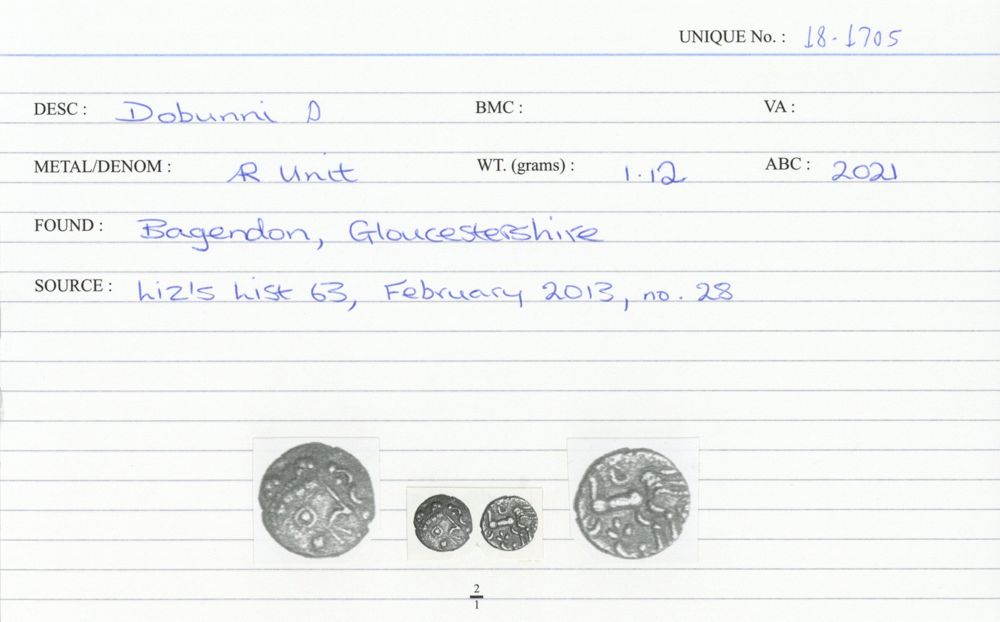 UNIQUE No. : 18-1705
DESC : Dobunni D BMC : VA :
METAL/DENOM : AR Unit WT. (grams) : 1.12 ABC : 2021
FOUND : Bagendon, Gloucestershire
SOURCE : Liz's List 63, February 2013, no. 28
2
1